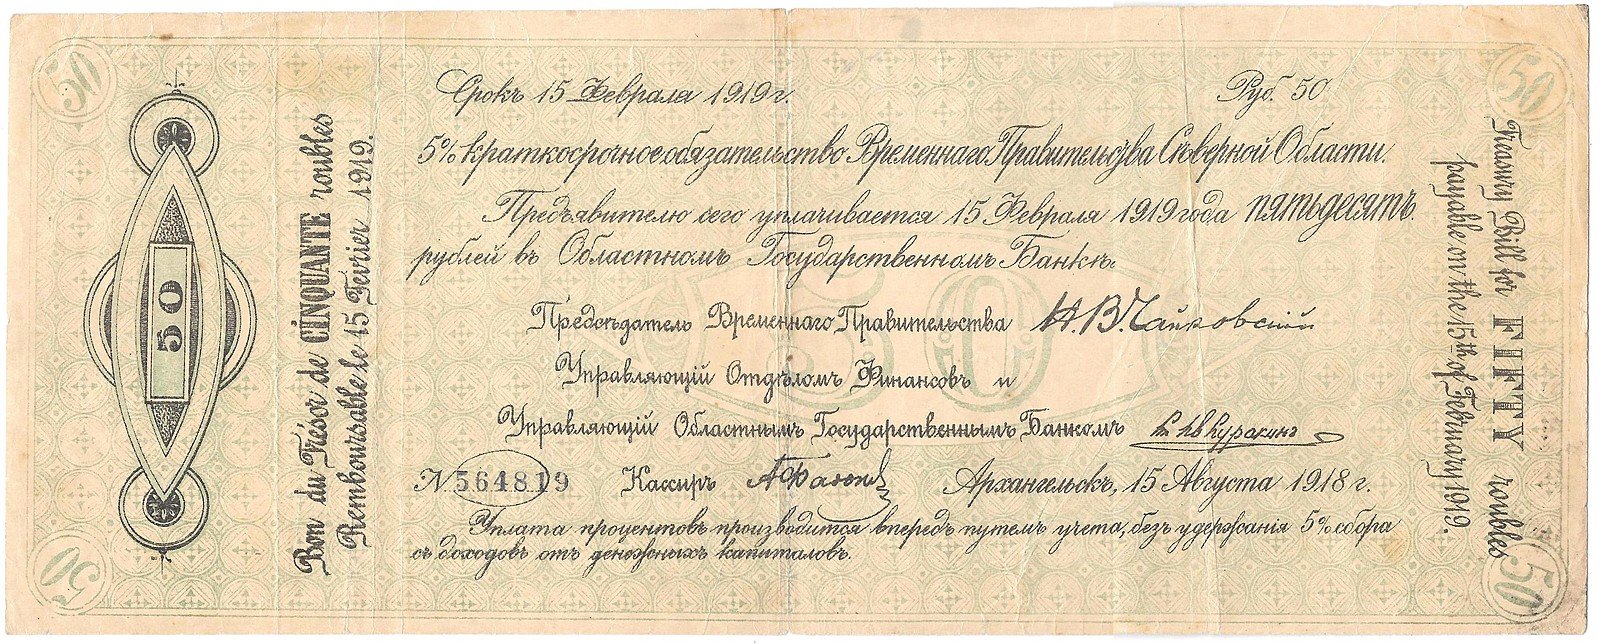 50
50
Срокъ 15 Февраля 1919 г.
Руб. 50
5% Краткосрочное обязательство Временнаго Правительства Сѣверной Области.
Предъявителю сего уплачивается 15 Февраля 1919 года пятьдесятъ
рублей въ Областномъ Государственномъ Банкѣ.
50
Предсѣдатель Временнаго Правительства Н. В. Чайковскій
Управляющій Отдѣломъ Финансовъ и
Управляющій Областнымъ Государственнымъ Банкомъ
№ 564819 Кассиръ
Архангельскъ, 15 Августа 1918 г.
Уплата процентовъ производится впередъ путемъ учета, безъ удержанія 5% сбора
съ доходовъ отъ денежныхъ капиталовъ.
50
Bon du Trésor de CINQUANTE roubles
Remboursable le 15 Février 1919.
Treasury Bill for FIFTY roubles
payable on the 15th of February 1919.
50
50